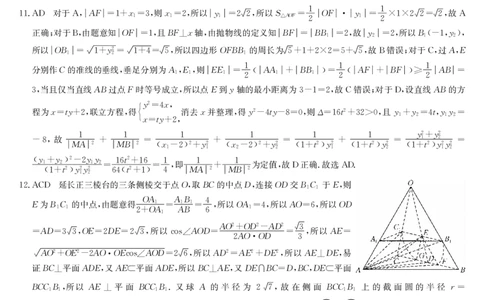 11. AD 对于 A, |AF|=1+x₁=3, 则 x₁=2, 所以 |y₁|=2√2, 所以 S△AOF=1/2|OF|·|y₁|=1/2×1×2√2=√2, 故 A
正确; 对于 B, 由题意知 |OF|=1, 且 BF⊥x 轴, 由抛物线的定义知 |BF|=|BB₁|=2, 故 |y₂|=2, 所以 B₁(-1,y₂),
所以 |OB₁|=√(1+y₂²)=√(1+4)=√5, 所以四边形 OFBB₁ 的周长为 √5+1+2×2=5+√5, 故 B 错误; 对于 C, 过 A, E
分别作 C 的准线的垂线, 垂足分别为 A₁, E₁, 则 |EE₁|=1/2(|AA₁|+|BB₁|)=1/2(|AF|+|BF|)≥1/2|AB|=
3, 当且仅当直线 AB 过点 F 时等号成立, 所以点 E 到 y 轴的最小距离为 3-1=2, 故 C 错误; 对于 D, 设直线 AB 的方
程为 x=ty+2, 联立方程, 得 {y²=4x, x=ty+2, 消去 x 并整理, 得 y²-4ty-8=0, 则 Δ=16t²+32>0, 且 y₁+y₂=4t, y₁y₂=
-8, 故 1/|MA|²+1/|MB|²=1/((x₁-2)²+y₁²)+1/((x₂-2)²+y₂²)=1/((1+t²)y₁²)+1/((1+t²)y₂²)=(y₁²+y₂²)/((1+t²)y₁²y₂²)=
((y₁+y₂)²-2y₁y₂)/((1+t²)y₁²y₂²)=(16t²+16)/(64(t²+1))=1/4, 即 1/|MA|²+1/|MB|² 为定值, 故 D 正确. 故选 AD.
12. ACD 延长正三棱台的三条侧棱交于点 O, 取 BC 的中点 D, 连接 OD 交 B₁C₁ 于 E, 则
E 为 B₁C₁ 的中点, 由题意得 OA₁/(2+OA₁)=A₁B₁/AB=4/6, 所以 OA₁=4, 所以 AO=6, 所以 OD
=AD=3√3, OE=2DE=2√3, 所以 cos∠AOD=(AO²+OD²-AD²)/(2AO·OD)=√3/3, 所以 AE=
√(AO²+OE²-2AO·OEcos∠AOD)=2√6, 所以 AD²=AE²+DE², 所以 AE⊥DE, 易
证 BC⊥平面 ADE, 又 AE⊂平面 ADE, 所以 BC⊥AE, 又 DE∩BC=D, BC, DE⊂平面
BCC₁B₁, 所以 AE⊥平面 BCC₁B₁. 又球 A 的半径为 2√7, 故在侧面 BCC₁B₁ 上的截面圆的半径 r=
O
C₁
E
A₁
B₁
C
D
A
B